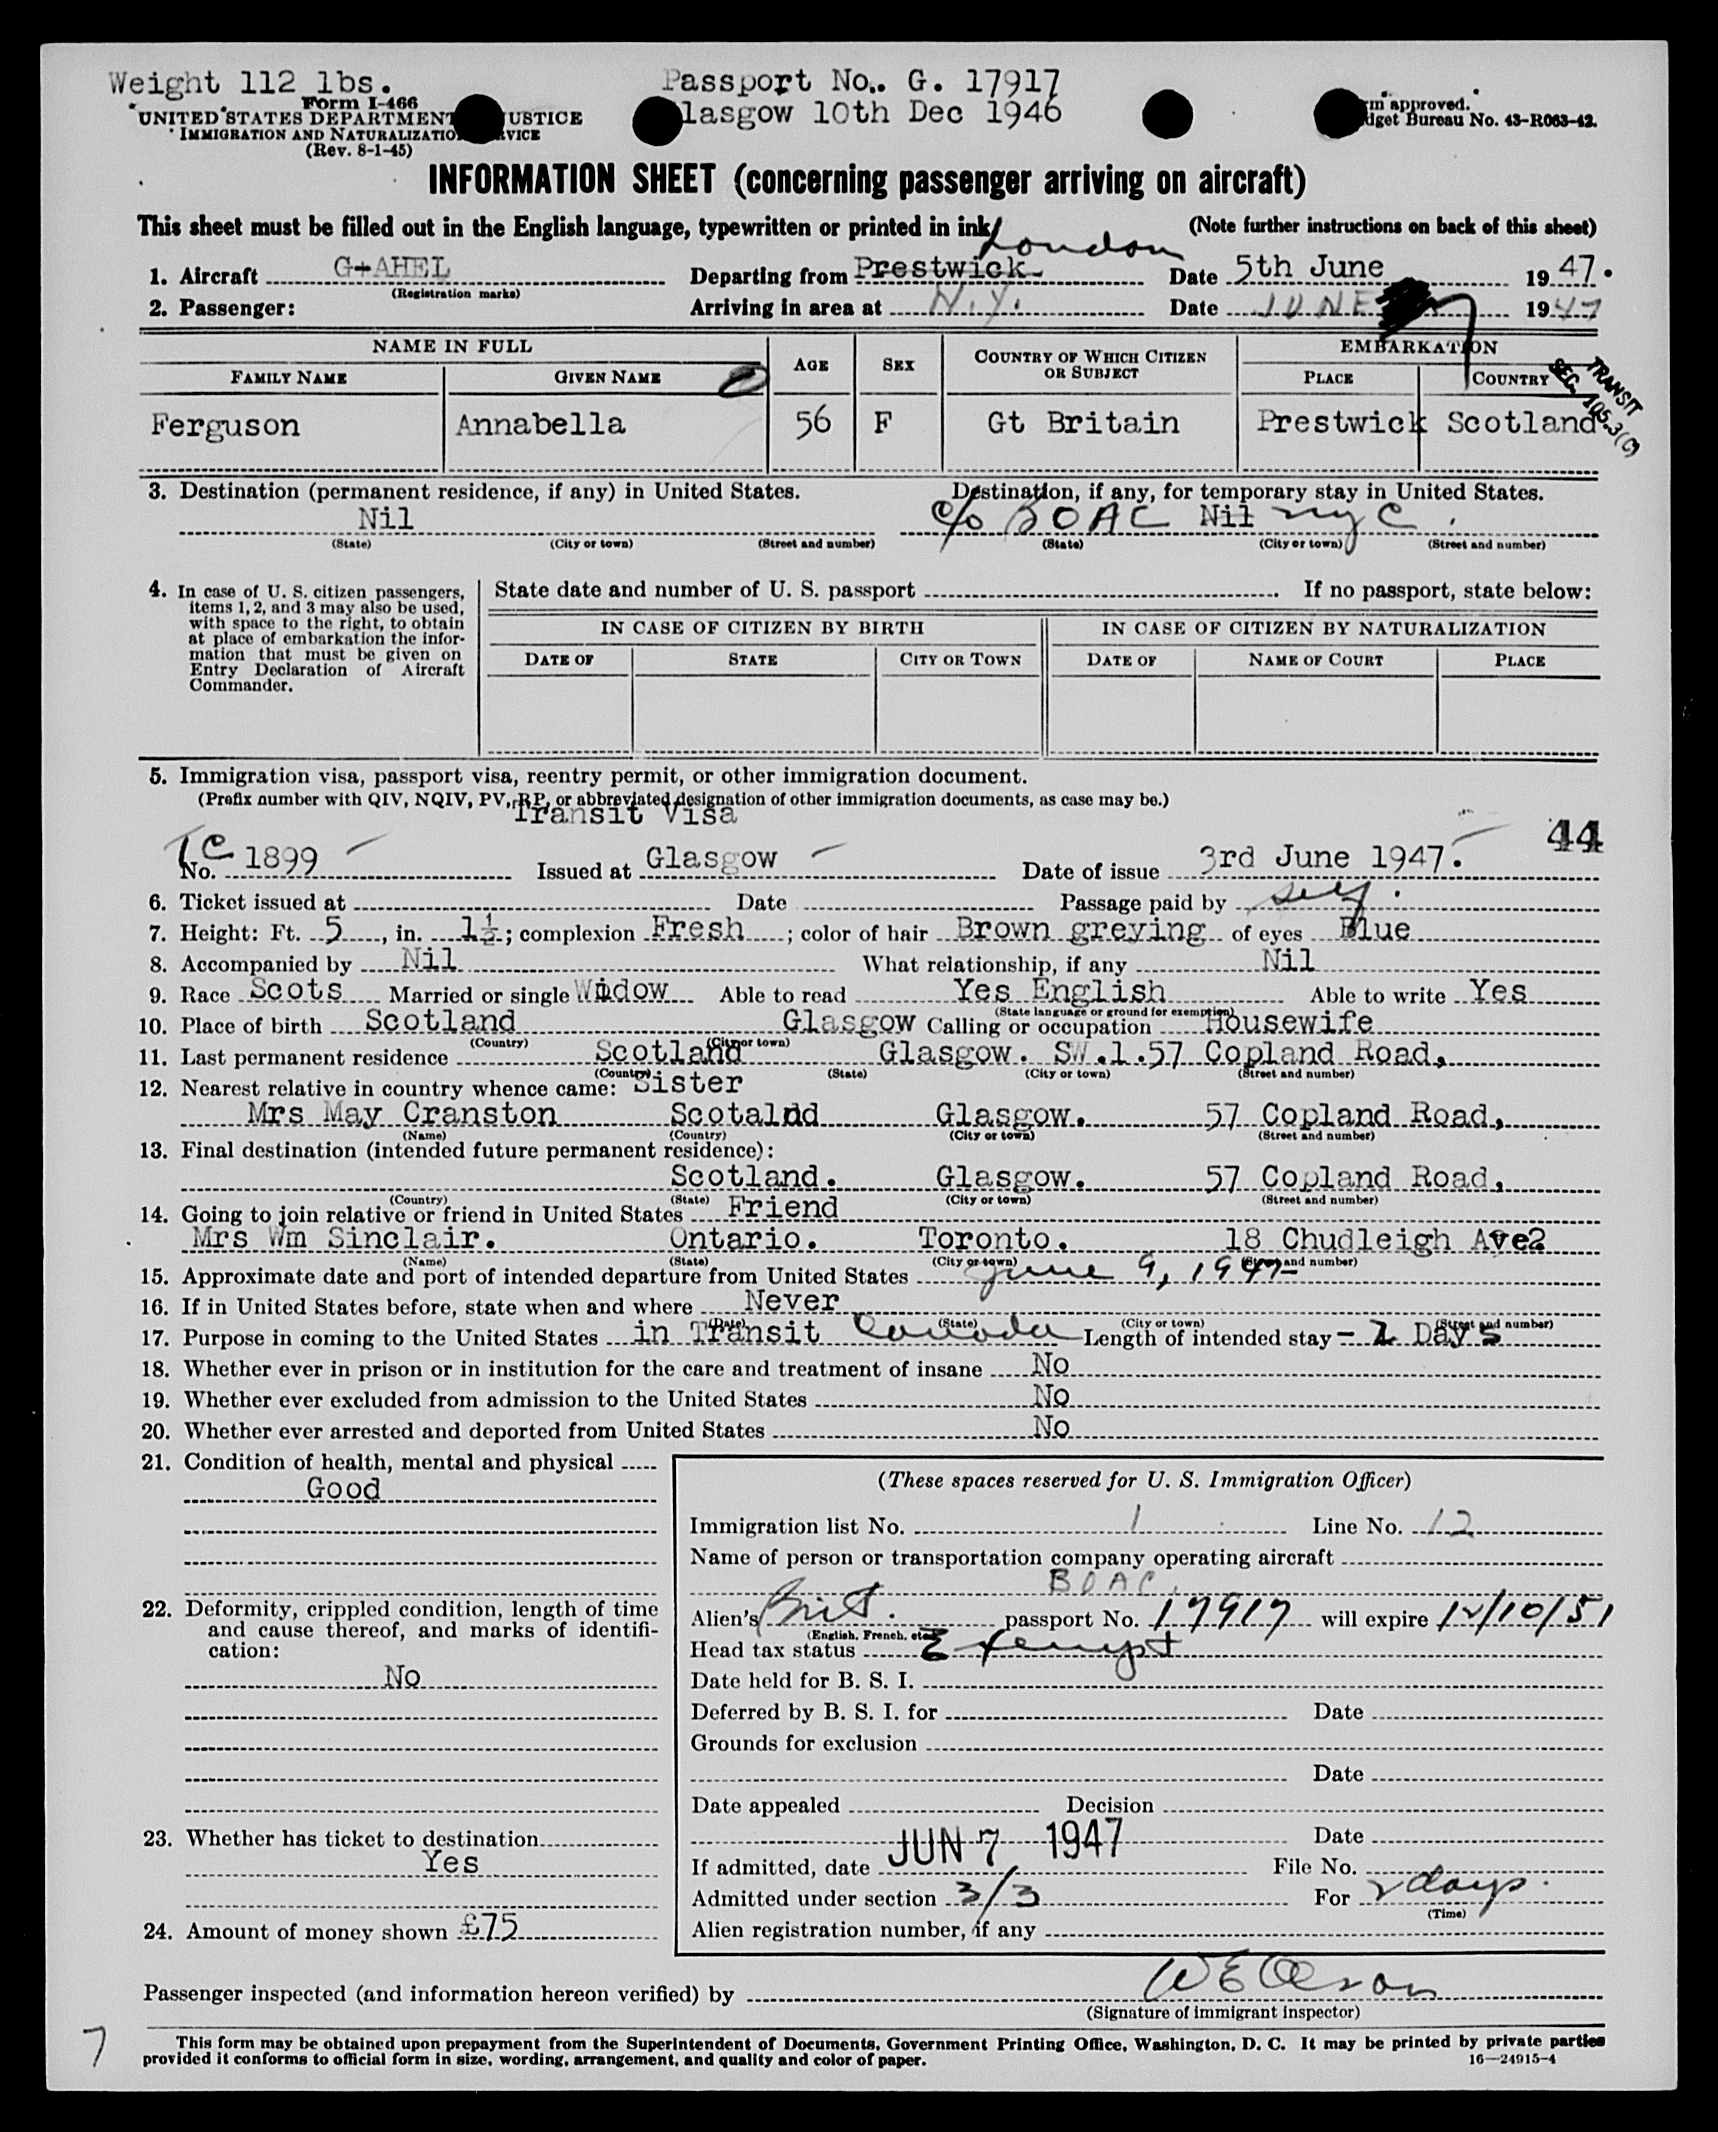 Weight 112 lbs. Passport No.. G. 17917
Form I-466
UNITED STATES DEPARTMENT USTICE lasgow 10th Dec 1946 m approved.
IMMIGRATION AND NATURALIZATIO VICE dget Bureau No. 43-R063-42.
(Rev. 8-1-45)
INFORMATION SHEET (concerning passenger arriving on aircraft)
This sheet must be filled out in the English language, typewritten or printed in ink (Note further instructions on back of this sheet)
London
1. Aircraft G-AHEL Departing from Prestwick Date 5th June 1947.
(Registration marks)
2. Passenger: Arriving in area at N.Y. Date JUNE 7 1947
NAME IN FULL AGE SEX COUNTRY OF WHICH CITIZEN OR SUBJECT EMBARKATION
FAMILY NAME GIVEN NAME PLACE COUNTRY
TRANSIT
SEC. 105.3(C)
Ferguson Annabella 56 F Gt Britain Prestwick Scotland
3. Destination (permanent residence, if any) in United States. Destination, if any, for temporary stay in United States.
Nil c/o BOAC Nil NYC
(State) (City or town) (Street and number) (State) (City or town) (Street and number)
4. In case of U. S. citizen passengers, items 1, 2, and 3 may also be used, with space to the right, to obtain at place of embarkation the information that must be given on Entry Declaration of Aircraft Commander.
State date and number of U. S. passport . If no passport, state below:
IN CASE OF CITIZEN BY BIRTH IN CASE OF CITIZEN BY NATURALIZATION
DATE OF STATE CITY OR TOWN DATE OF NAME OF COURT PLACE
5. Immigration visa, passport visa, reentry permit, or other immigration document.
(Prefix number with QIV, NQIV, PV, RP, or abbreviated designation of other immigration documents, as case may be.)
Transit Visa
44
TC
No. 1899 Issued at Glasgow Date of issue 3rd June 1947.
6. Ticket issued at Date Passage paid by self
7. Height: Ft. 5, in. 1½; complexion Fresh; color of hair Brown greying of eyes Blue
8. Accompanied by Nil What relationship, if any Nil
9. Race Scots Married or single Widow Able to read Yes English Able to write Yes
(State language or ground for exemption)
10. Place of birth Scotland Glasgow Calling or occupation Housewife
(Country) (City or town)
11. Last permanent residence Scotland Glasgow. SW.1. 57 Copland Road,
(Country) (State) (City or town) (Street and number)
12. Nearest relative in country whence came: Sister
Mrs May Cranston Scotalnd Glasgow. 57 Copland Road,
(Name) (Country) (City or town) (Street and number)
13. Final destination (intended future permanent residence):
Scotland. Glasgow. 57 Copland Road,
(Country) (State) (City or town) (Street and number)
14. Going to join relative or friend in United States Friend
Mrs Wm Sinclair. Ontario. Toronto. 18 Chudleigh Ave?
(Name) (State) (City or town) (Street and number)
15. Approximate date and port of intended departure from United States June 9, 1947
16. If in United States before, state when and where Never
(Date) (State) (City or town) (Street and number)
17. Purpose in coming to the United States in Transit Canada Length of intended stay - 2 Days
18. Whether ever in prison or in institution for the care and treatment of insane No
19. Whether ever excluded from admission to the United States No
20. Whether ever arrested and deported from United States No
21. Condition of health, mental and physical
Good
22. Deformity, crippled condition, length of time
and cause thereof, and marks of identifi-
cation:
No
23. Whether has ticket to destination
Yes
24. Amount of money shown £75
(These spaces reserved for U. S. Immigration Officer)
Immigration list No. 1 Line No. 12
Name of person or transportation company operating aircraft
BOAC.
Alien's Brit. passport No. 17917 will expire 12/10/51
(English, French, etc.)
Head tax status Exempt
Date held for B. S. I.
Deferred by B. S. I. for Date
Grounds for exclusion
Date
Date appealed Decision
Date
If admitted, date JUN 7 1947 File No.
Admitted under section 3/3 For 2 days.
(Time)
Alien registration number, if any
Passenger inspected (and information hereon verified) by
(Signature of immigrant inspector)
7
This form may be obtained upon prepayment from the Superintendent of Documents, Government Printing Office, Washington, D. C. It may be printed by private parties
provided it conforms to official form in size, wording, arrangement, and quality and color of paper. 16—24915-4